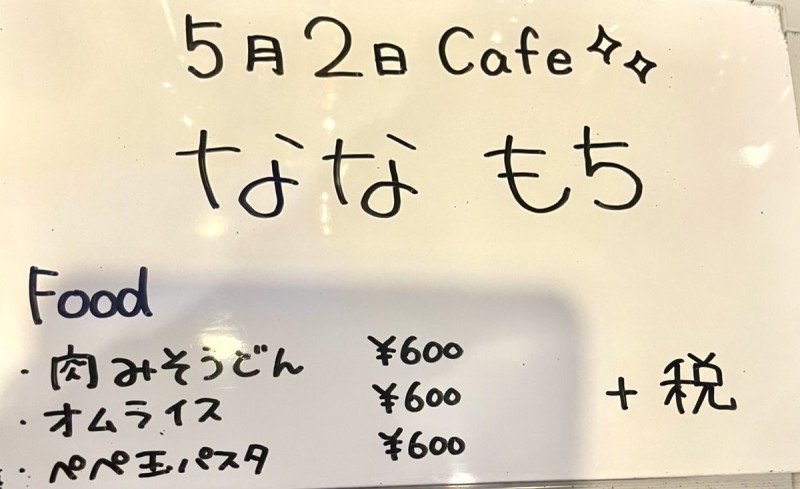 5月2日 Cafe
なな もち
Food
・肉みそうどん ¥600
・オムライス ¥600 + 税
・ペペ玉パスタ ¥600